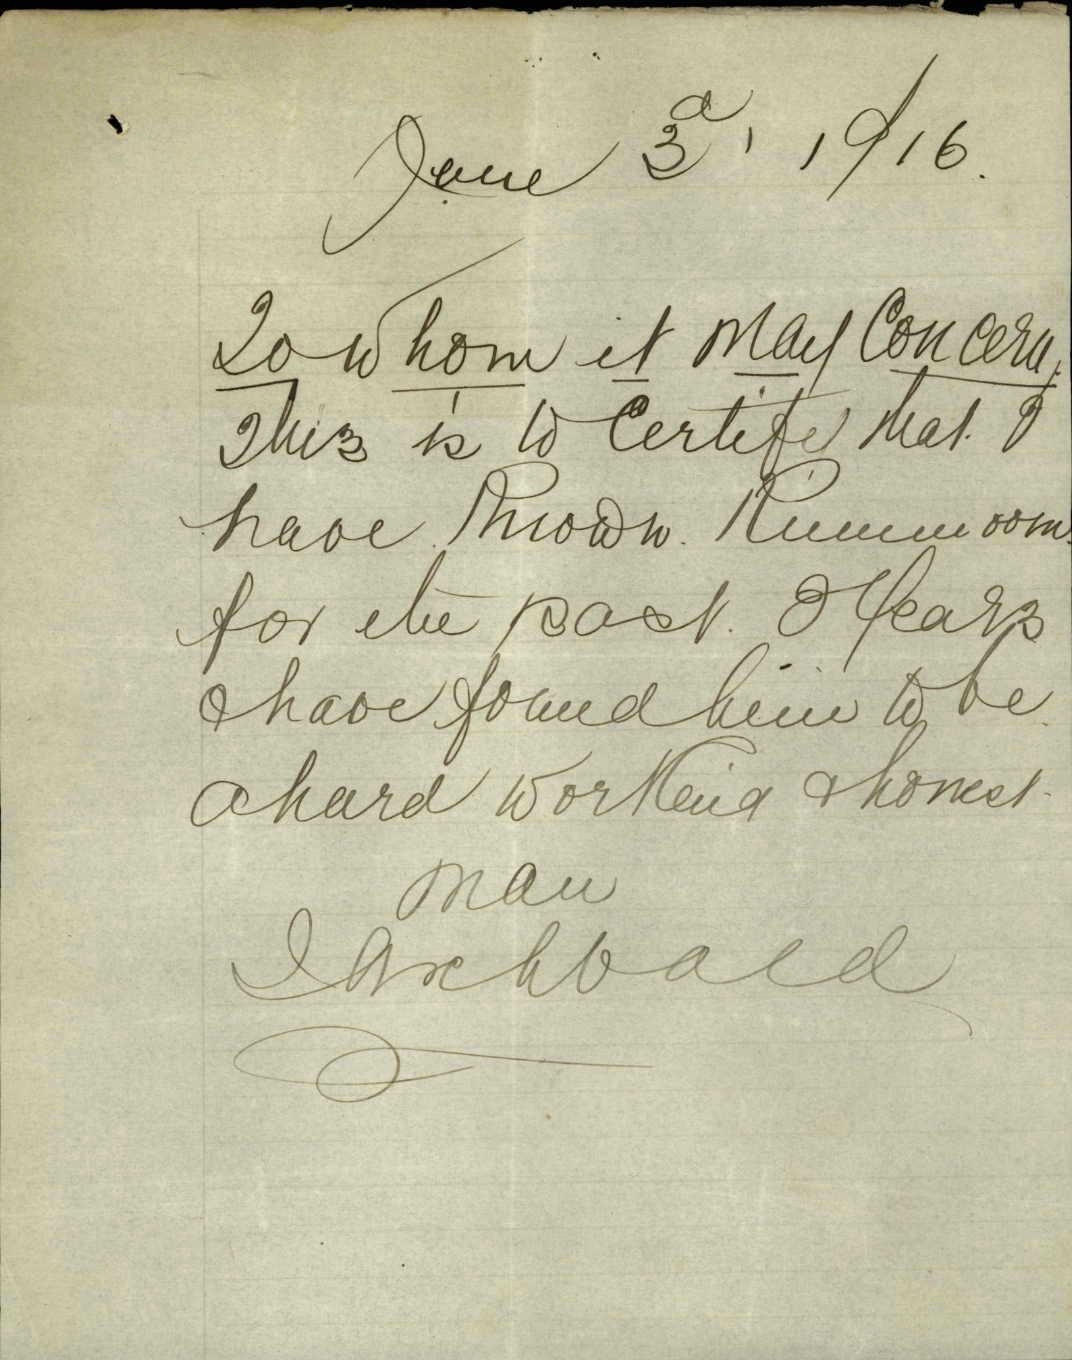 June 3d, 1916.
To whom it May Concern,
This is to Certife that I
have Known. Rummoom.
for the past. Years
& have found him to be
a hard working & honest.
man
J Archbald